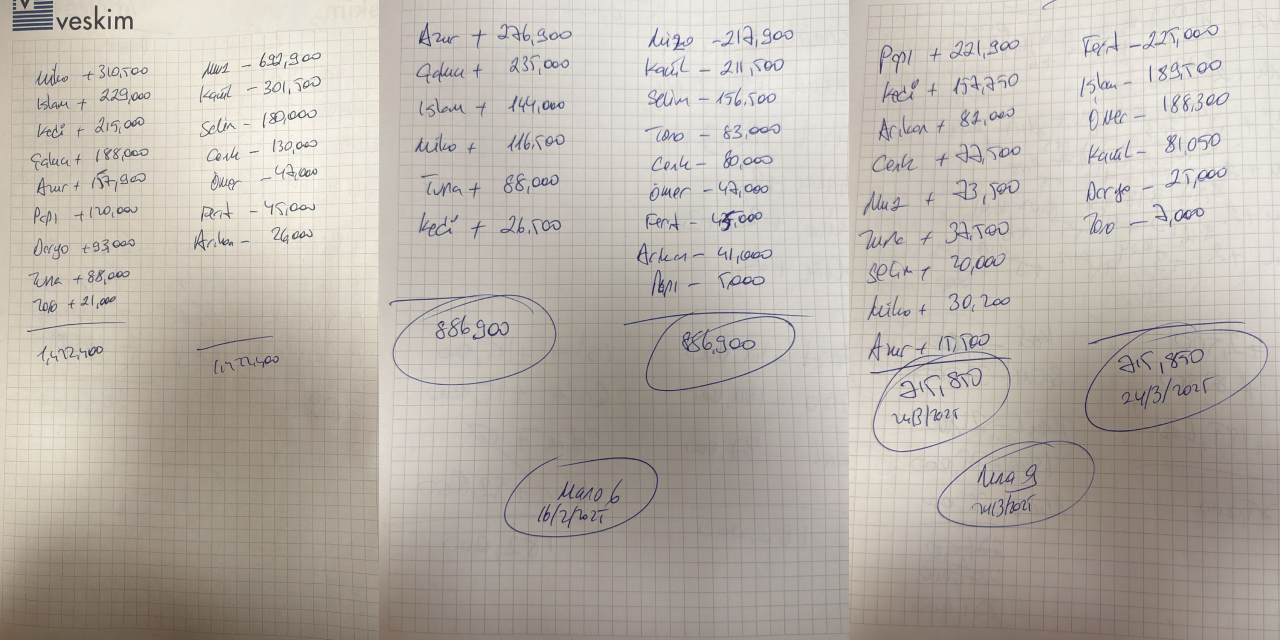 veskim
Miko + 310,500
Islam + 229,000
Kedi + 215,000
Galwa + 188,000
Azur + 157,900
Papi + 120,000
Dorgo + 93,000
Tuna + 88,000
Toro + 21,000
1,422,400
Muz - 692,900
Kamil - 301,500
Selim - 180,000
Cenk - 130,000
Ömer - 47,000
Ferit - 45,000
Arikan - 26,000
1,422,400
Azur + 276,900
+ 235,000
Islam + 144,000
Miko + 116,500
Tuna + 88,000
Kedi + 26,500
886,900
- 217,900
Kamil - 211,500
Selim - 156,500
Toro - 83,000
Cenk - 80,000
Ömer - 47,000
Ferit - 45,000
Arikan - 41,000
Papi - 5,000
886,900
6
16/2/2025
Papi + 221,900
Kedi + 157,750
Arikan + 82,000
Cenk + 77,500
Muz + 73,500
Tuna + 37,500
Selim + 20,000
Miko + 30,200
Azur + 15,500
715,850
24/3/2025
Ferit - 225,000
Islam - 189,500
Ömer - 188,300
Kamil - 81,050
Dorgo - 25,000
Toro - 7,000
715,850
24/3/2025
9
24/3/2025